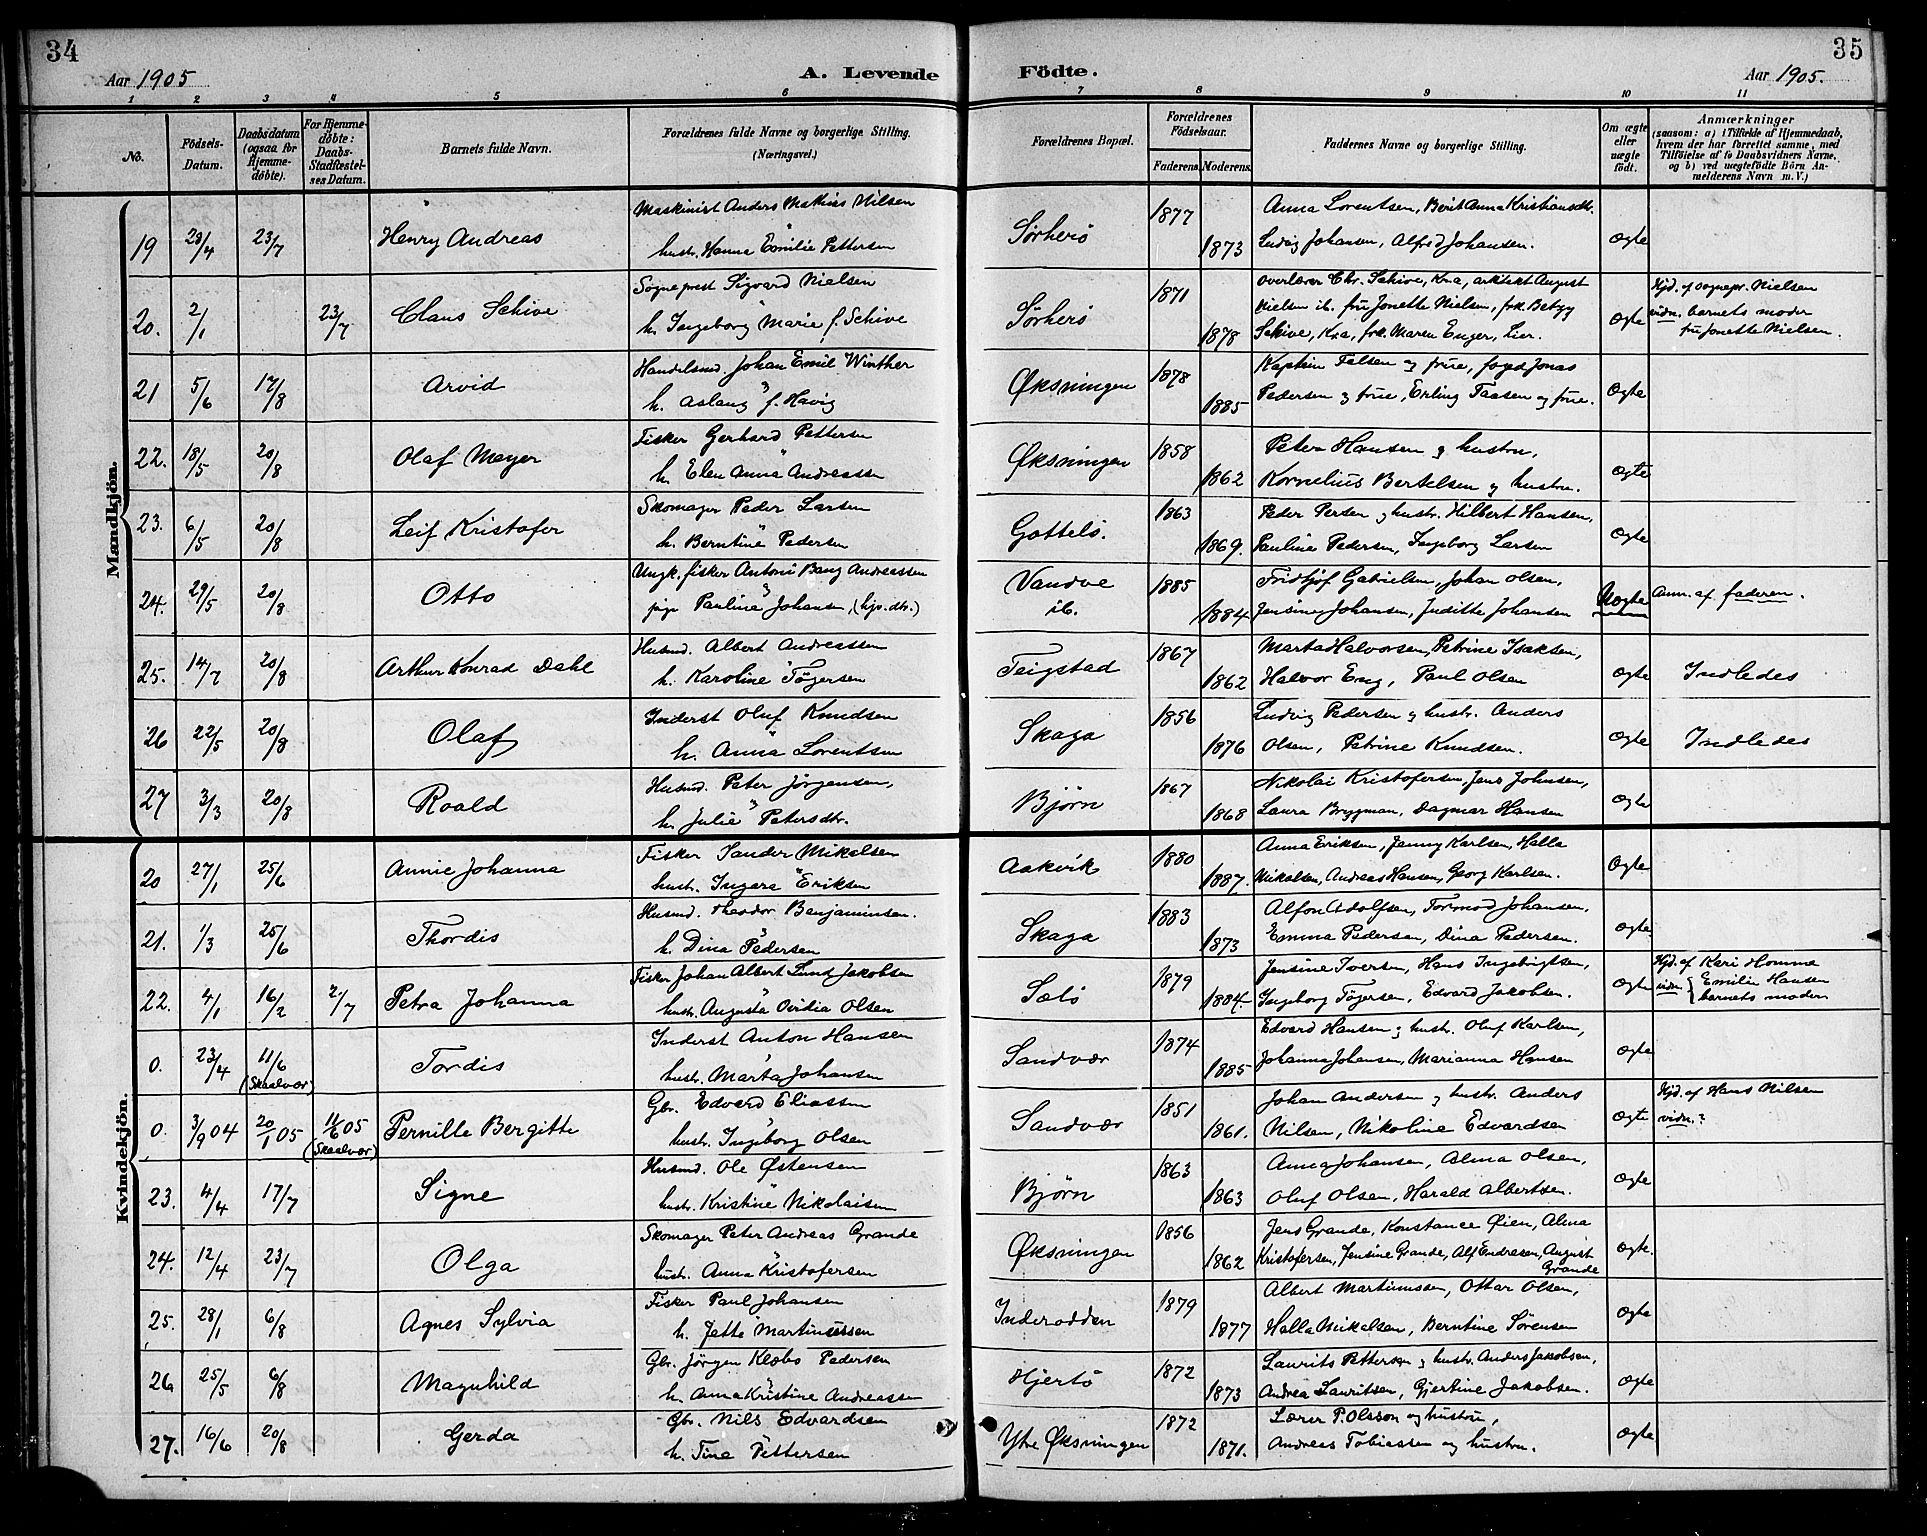 34
Aar 1905
A. Levende Födte.
35
Aar 1905.
1 2 3 4 5 6 7 8 9 10 11
No.
Födsels-Datum.
Daabsdatum (ogsaa for Hjemme-döbte).
For Hjemme-döbte: Daabs-Stadfæstel-ses Datum.
Barnets fulde Navn.
Forældrenes fulde Navne og borgerlige Stilling.
(Næringsvei.)
Forældrenes Bopæl.
Forældrenes Födselsaar.
Faderens. Moderens.
Faddernes Navne og borgerlige Stilling.
Om ægte eller uægte födt.
Anmærkninger
(saasom: a) i Tilfælde af Hjemmedaab, hvem der har forrettet samme, med Tilföielse af to Daabsvidners Navne, og b) ved uægtefödte Börn An-melderens Navn m. V.)
Mandkjön.
19 23/4 23/7 Henry Andreas
Maskinist Anders Mathias Nilsen
hustr. Hanna Emilie Pettersen
Sørherö 1877 1873
Anna Lorentsen, Berit Anna Kristiansdtr.
Ludvig Johansen, Alfred Johansen.
ægte
20. 2/1 23/7 Claus Schive
Sogneprest Sigvard Nielsen
h. Ingeborg Marie f. Schive
Sørherö 1871 1878
overlærer Chr. Schive, Kra, arkitekt August
Nielsen ib. fru Jonette Nielsen, frk. Betzy
Schive, Kra, frk. Maren Enger, Lier.
ægte
Hjd. af sognepr. Nielsen
vidn. barnets moder
fru Jonette Nielsen.
21 5/6 17/8 Arvid
Handelsmd. Johan Emil Winther
h. Aslaug f. Havig
Øksningen 1878 1885
Kaptein Falsen og frue, foged Jonas
Pedersen og frue, Erling Taasen og frue.
ægte
22. 18/5 20/8 Olaf Meyer
Fisker Gerhard Pettersen
h. Elen Anna Andreassen
Øksningen 1858 1862
Peter Hansen og hustru,
Kornelius Bertelsen og hustru.
ægte
23. 6/5 20/8 Leif Kristofer
Skomager Peder Larsen
h. Berntine Pedersen
Gottelö. 1863 1869.
Peder Persen og hustr. Hilbert Hansen,
Pauline Pedersen, Ingeborg Larsen
ægte
24. 29/5 20/8 Otto
Ungk. fisker Antoni Bang Andreassen
pige Paulina Johansen, (hjs. dtr.)
Vandve
ib. 1885 1884
Fridtjof Gabrielsen, Johan Olsen,
Jensine Johansen, Juditte Johansen
Uægte
Anm. af faderen.
25. 14/7 20/8 Arthur Konrad Dahl
Husmd. Albert Andreassen
h. Karoline Tögersen
Teigstad 1867 1862
Marta Halvorsen, Petrine Isaksen,
Halvor Eng, Paul Olsen
ægte
Indledes
26 22/5 20/8 Olaf
Inderst Oluf Knudsen
h. Anna Lorentsen
Skaga 1856 1876
Ludvig Pedersen og hustr. Anders
Olsen, Petrine Knudsen.
ægte
Indledes
27 3/3 20/8 Roald
Husmd. Peter Jörgensen,
h. Julie Petersdtr.
Bjørn 1867 1868
Nikolai Kristofersen, Jens Johnsen,
Laura Brygman, Dagmar Hansen
ægte
Kvindekjön.
20 27/1 25/6 Annie Johanna
Fisker Sander Mikalsen
hustr. Ingara Eriksen
Aakvik 1880 1887.
Anna Eriksen, Jenny Karlsen, Halla
Mikalsen, Andreas Hansen, Georg Karlsen.
ægte
21. 1/3 25/6 Thordis
Husmd. Theodor Benjaminsen.
h. Dina Pedersen
Skaga 1883 1873
Alfon Adolfsen, Tormod Johansen,
Emma Pedersen, Dina Pedersen.
ægte
22. 4/1 16/2 2/7 Petra Johanna
Fisker Johan Albert Lund Jakobsen
hustr. Augusta Ovidia Olsen
Sælö 1879 1884.
Jensine Iversen, Hans Ingebrigtsen,
Ingeborg Tögersen, Edvard Jakobsen.
ægte
Hjd. af Kari Homme
vidn. Emilie Hansen
barnets moder
0. 23/4 11/6 (Skaalvær) Tordis
Inderst Anton Hansen
hustr. Marta Johansen
Sandvær 1874 1885
Edvard Hansen og hustr. Oluf Karlsen,
Johanna Johansen, Marianna Hansen
ægte
0. 3/9 04 20/1 05 11/6 05 (Skaalvær) Pernille Bergitte
Gbr. Edvard Eliassen
hustr. Ingeborg Olsen
Sandvær 1851 1861.
Johan Andersen og hustr. Anders
Nilsen, Nikoline Edvardsen
ægte
Hjd. af Hans Nilsen
vidn.?
23. 4/4 17/7 Signe
Husmd. Ole Østensen
hustr. Kristine Nikolaisen
Bjørn 1863 1863
Anna Johansen, Alma Olsen,
Oluf Olsen, Harald Albertsen.
ægte
24. 12/4 23/7 Olga
Skomager Peter Andreas Grande
hustr. Anna Kristofersen
Øksningen 1856 1862
Jens Grande, Konstance Øien, Alma
Kristofersen, Jensine Grande, Alf Endresen, August
Grande
ægte.
25. 28/1 6/8 Agnes Sylvia
Fisker Paul Johansen
h. Jette Martinussen
Inderodden 1879 1877
Albert Martinussen, Ottar Olsen,
Halla Mikalsen, Berntine Sörensen
ægte
26 25/5 6/8 Magnhild
Gbr. Jörgen Klæbo Pedersen
h. Anna Kristine Andreassen
Hjertö 1872 1873
Laurits Pettersen og hustr. Anders Jakobsen,
Andrea Lauritsen, Gjertine Jakobsen.
ægte
27. 16/6 20/8 Gerda
Gbr. Nils Edvardsen
h. Tine Pettersen
Ytre Øksningen 1872 1871.
Lærer P. Olsson og hustru,
Andreas Tobiassen og hustru.
ægte